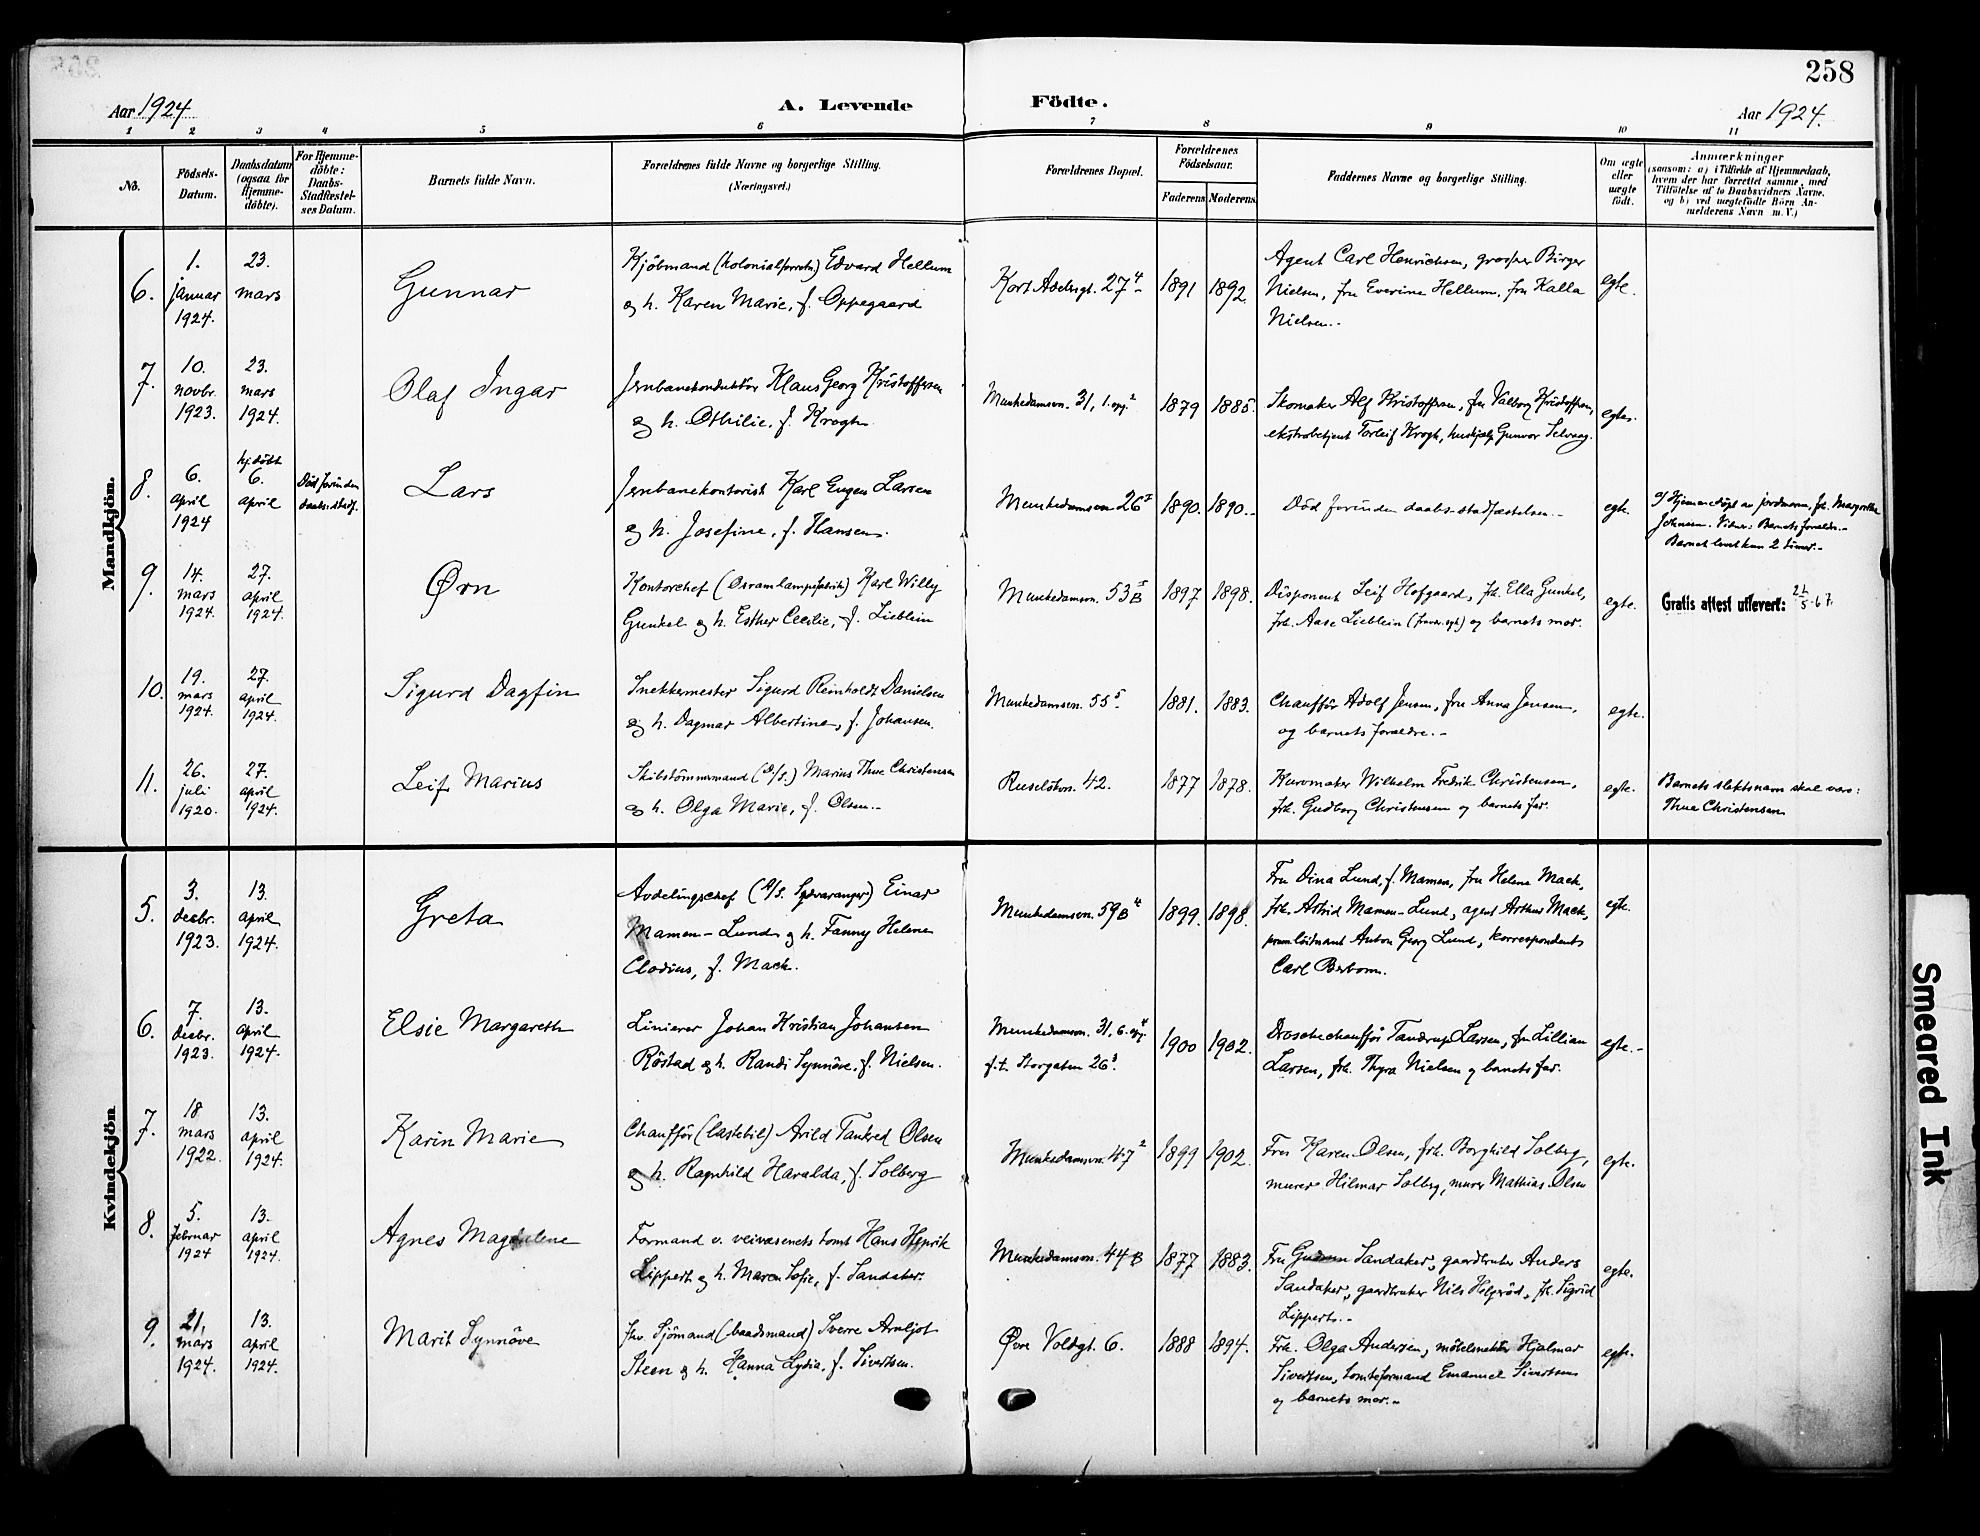 258
Aar 1924
A. Levende Födte.
Aar 1924.
1 2 3 4 5 6 7 8 9 10 11
No.
Födsels-
Datum.
Daabsdatum
(ogsaa for
Hjemme-
döbte).
For Hjemme-
döbte:
Daabs-
Stadfæstel-
ses Datum.
Barnets fulde Navn.
Forældrenes fulde Navne og borgerlige Stilling.
(Næringsvei.)
Forældrenes Bopæl.
Forældrenes
Födselsaar.
Faderens
Moderens
Faddernes Navne og borgerlige Stilling.
Om ægte
eller
uægte
födt.
Anmærkninger
(saasom: a) i Tilfælde af Hjemmedaab,
hvem der har forrettet samme, med
Tilföielse af to Daabsvidners Navne.
og b) ved uægtefödte Börn An-
melderens Navn m. V.)
Mandkjön.
6.
1.
januar
1924.
23.
mars
Gunnar
Kjöbmand (kolonialforretn.) Edvard Hellum
og h. Karen Marie, f. Oppegaard
Kort Adelersgt. 27 4
1891
1892.
Agent Carl Henrichsen, grosser Birger
Nielsen, fru Everine Hellum, fru Kalla
Nielsen.
egte.
7.
10.
novbr.
1923.
23.
mars
1924.
Olaf Ingar
Jernbanekonduktör Klaus Georg Kristoffersen
og h. Othilie, f. Krogh
Munkedamsvn. 31, 1. opg. 2
1879
1885.
Skomaker Alf Kristoffersen, fru Valborg Kristoffersen,
ekstrabetjent Torleif Krogh, hushjelp Gunvor Selvaag.
egte.
8.
6.
april
1924
hj.döbt
6.
april
Död forinden
daabs. stadf.
Lars
Jernbanekontorist Karl Eugen Larsen
og h. Josefine, f. Hansen.
Munkedamsvn 26
1890.
1890.
Död forinden daabs-stadfæstelsen.
egte.
a/ Hjemmedöpt av jordmoren, frk. Margrethe
Johnsen. Vidner: Barnets forældre.
Barnet levet kun 2 timer.
9.
14.
mars
1924.
27.
april
1924.
Ørn
Kontorchef (Osramlampefabrik) Karl Willy
Gunkel og h. Esther Cecilie, f. Lieblein
Munkedamsvn. 53 B
1897
1898.
Disponent Leif Hofgaard, frk. Ella Gunkel,
frk. Aase Lieblein og barnets mor.
egte.
Gratis attest utlevert: 22/5-67.
10.
19.
mars
1924.
27.
april
1924.
Sigurd Dagfin
Snekkermester Sigurd Reinholdt Danielsen
og h. Dagmar Albertine, f. Johansen.
Munkedamsvn. 55 5
1881.
1883.
Chaufför Adolf Jensen, fru Anna Jensen,
og barnets forældre.
egte.
11.
26.
juli
1920.
27.
april
1924.
Leif Marius
Skibstömmermand Marius Thue Christensen
og h. Olga Marie, f. Olsen.
Ruselökvn. 42.
1877
1878.
Kurvmaker Wilhelm Fredrik Christensen,
frk. Gudborg Christensen og barnets far.
egte.
Barnets slektsnavn skal være:
Thue Christensen
Kvindekjön
5.
3.
desbr.
1923.
13.
april
1924.
Greta
Avdelingschef (A/S. Sydvaranger) Einar
Mamen-Lund og h. Fanny Helene
Clodius, f. Mack.
Munkedamsvn. 59 B 4
1899.
1898.
Fru Dina Lund, f. Mamen, fru Helene Mack,
frk. Astrid Mamen-Lund, agent Arthur Mack,
premlöitnant Anton Georg Lund, korrespondent
Carl Berbom.
egte.
6.
7.
desbr.
1923.
13.
april
1924.
Elsie Margareth
Linierer Johan Kristian Johansen
Röstad og h. Randi Synnöve, f. Nielsen.
Munkedamsvn. 31, 6. opg. 4
f.t. Storgaten 26 3.
1900
1902.
Droschechaufför Tandrup Larsen, fru Lillian
Larsen, frk. Thyra Nielsen og barnets far.
egte.
7.
18
mars
1922.
13.
april
1924.
Karin Marie
Chaufför (lastebil) Arild Tankred Olsen
og h. Ragnhild Haralda, f. Solberg
Munkedamsvn. 47 2
1899
1902.
Fru Karen Olsen, frk. Borghild Solberg,
murer Hilmar Solberg, murer Mathias Olsen
egte.
8.
5.
februar
1924
13.
april
1924.
Agnes Magdalene
Formand v. veivæsenets tomt Hans Henrik
Lippert og h. Maren Sofie, f. Sandaker.
Munkedamsvn. 44 B
1877
1883.
Fru Gudrun Sandaker, gaardbruker Anders
Sandaker, gaardbruker Nils Helgeröd, frk. Sigrid
Lippert.
egte.
9.
21.
mars
1924.
13.
april
1924.
Marit Synnöve
fhv. Sjömand (baadsmand) Sverre Arnljot
Steen og h. Hanna Lydia, f. Sivertsen.
Øvre Voldgt. 6.
1888
1894.
Frk. Olga Andersen, möbelsnekker Hjalmar
Sivertsen, tomteformand Emanuel Sivertsen
og barnets mor.
egte.
Smeared Ink